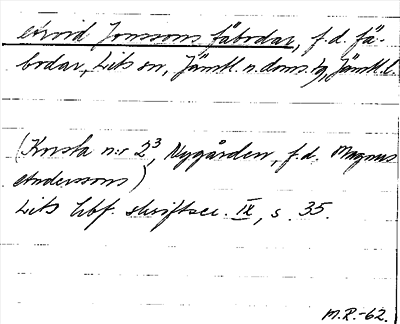 Arvid Jonssons fäbodar, f.d. fä-
bodar, Lits sn, Jämtl. n. doms. tg, Jämtl. l.
(Krusta n:r 2³, Nygården, f.d. Magnus
Anderssons)
Lits hbf. skriftser. IX, s. 35.
M.R.-62.